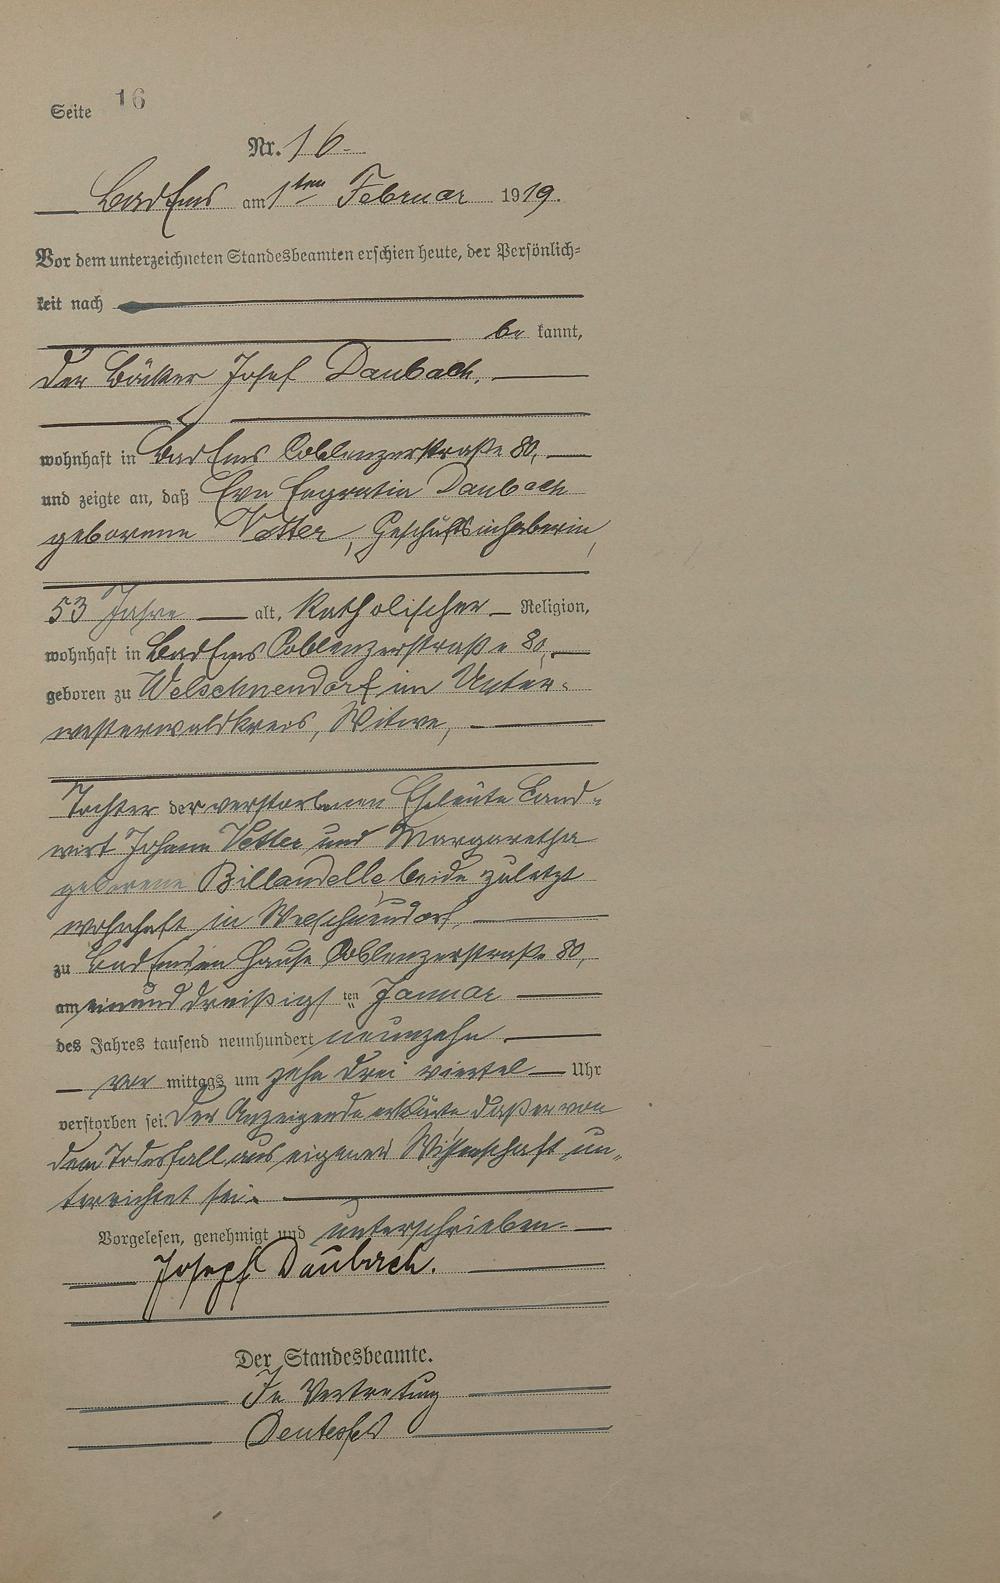 Seite 16
Nr. 16.
Bad Ems am 1ten Februar 1919.
Vor dem unterzeichneten Standesbeamten erschien heute, der Persönlich-
keit nach
be kannt,
der Bäcker Josef Daubach,
wohnhaft in Bad Ems Coblenzerstraße 80,
und zeigte an, daß Eva Engratia Daubach
geborene Vetter, Geschäftsinhaberin,
53 Jahre alt, katholischer Religion,
wohnhaft in Bad Ems Coblenzerstraße 80,
geboren zu Welschneudorf im Unter-
westerwaldkreis, Witwe,
Tochter der verstorbenen Eheleute Land-
wirt Johann Vetter und Margaretha
geborene Billaudelle, beide zuletzt
wohnhaft in Welschneudorf,
zu Bad Ems im Hause Coblenzerstraße 80,
am einund dreißigsten Januar
des Jahres tausend neunhundert neunzehn
vor mittags um zehn drei viertel Uhr
verstorben sei. Der Anzeigende erklärte daß er von
dem Todesfall aus eigener Wissenschaft un-
terrichtet sei.
Vorgelesen, genehmigt und unterschrieben.
Joseph Daubach.
Der Standesbeamte.
In Vertretung